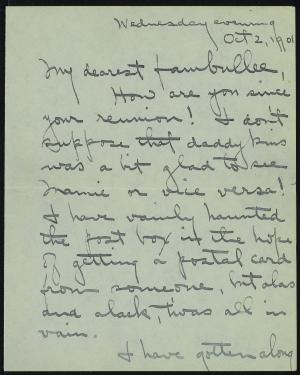 Wednesday evening
Oct 2, 190
My dearest Fambullee,
How are you since
your reunion! I don't
suppose that daddy kins
was a bit glad to see
Mamie or vice versa!
I have vainly haunted
the post box in the hope
of getting a postal card
from someone, but alas
and alack, 'twas all in
vain.
I have gotten along